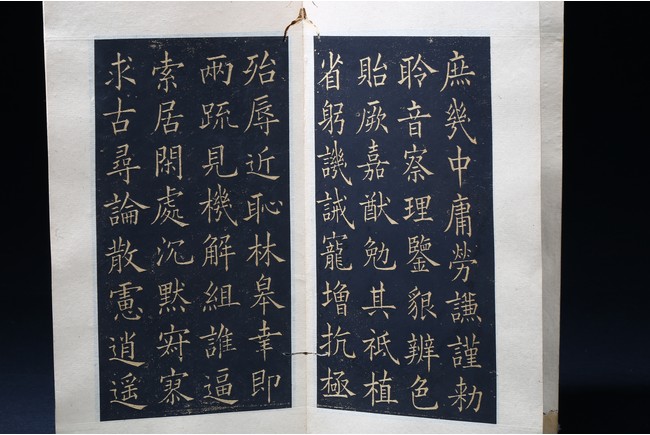 庶幾中庸勞謙謹勅
聆音察理鑒貌辨色
貽厥嘉猷勉其祗植
省躬譏誡寵增抗極
殆辱近恥林皋幸即
兩疏見機解組誰逼
索居閑處沉默寂寥
求古尋論散慮逍遙